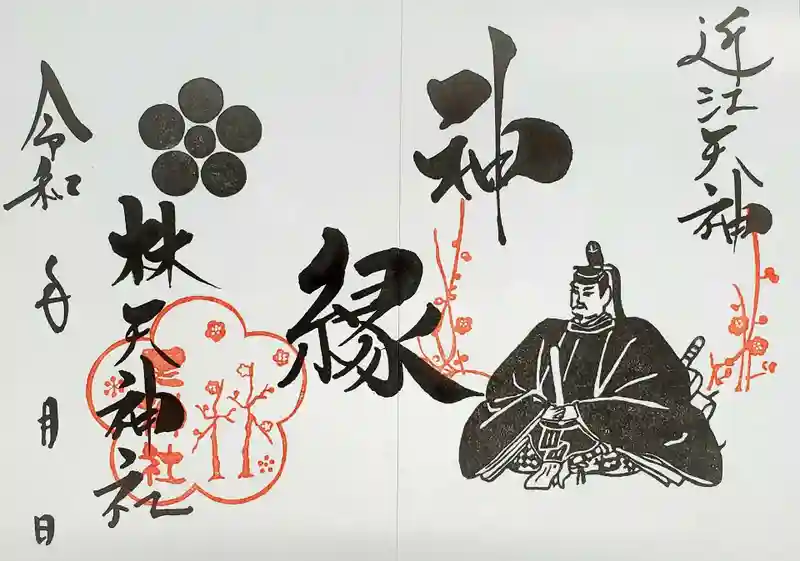 近江天神
神縁
株天神社
令和 年 月 日